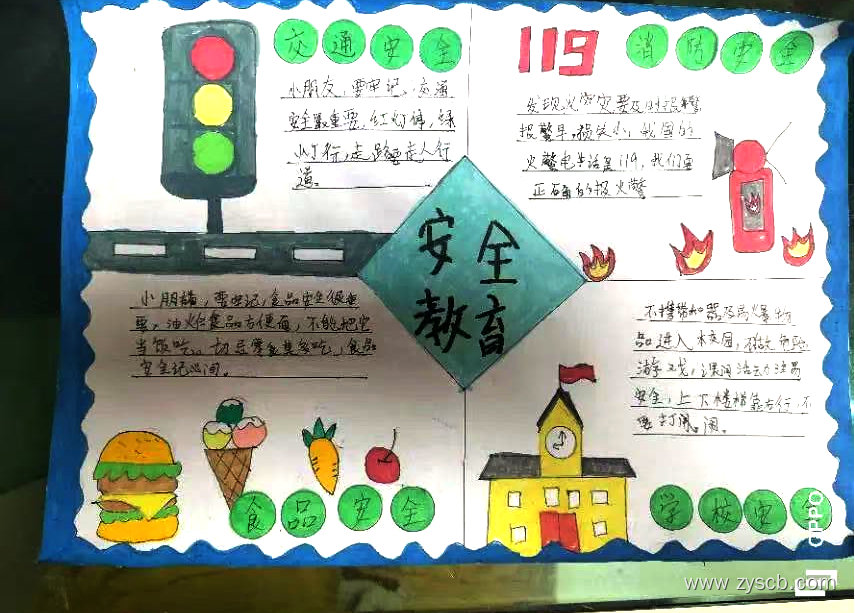 交通安全
小朋友,要牢记,交通
安全最重要,红灯停,绿
灯行,走路要走人行
道。
119 消防安全
发现火灾要及时报警
报警早,损失小,我国的
火警电话是119,我们要
正确的报火警
安全
教育
小朋,要牢记,食品安全很重
要,油炸食品方便面,不能把它
当饭吃,切忌零食莫多吃,食品
安全记心间。
食品安全
不携带 器及易爆物
品进入校园,不做危险
游戏,课间活动注意
安全,上下楼梯靠右行,不
要打闹。
学校安全
OPPO
www.zyscb.com